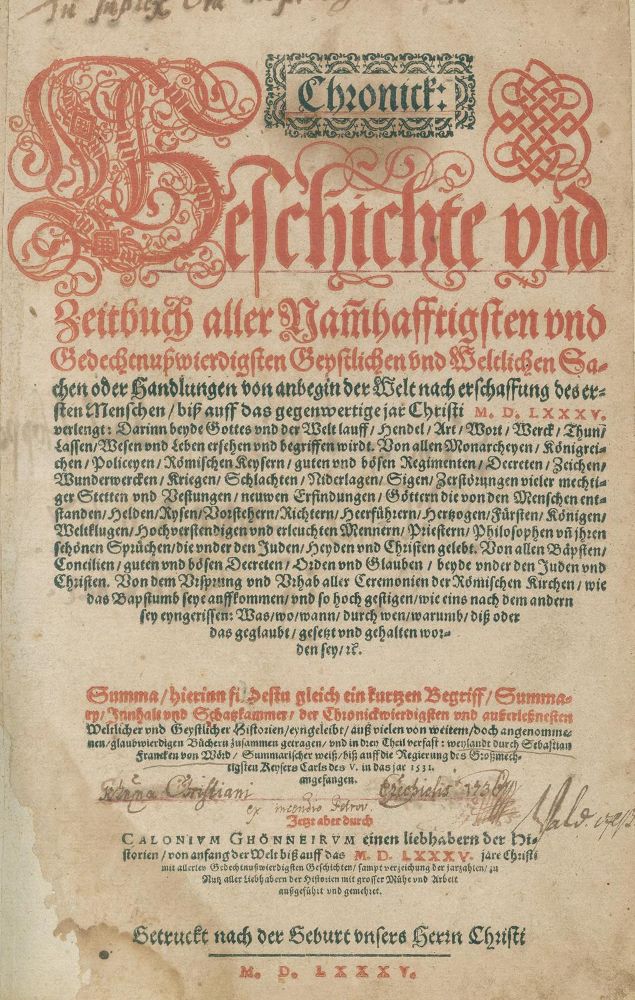 Chronick:
Geschichte vnd
Zeitbuch aller Nam̃hafftigsten vnd
Gedechtnußwierdigsten Geystlichen vnd Weltlichen Sa-
chen oder Handlungen von anbegin der Welt nach erschaffung des er-
sten Menschen / biß auff das gegenwertige jar Christi M. D. LXXXV.
verlengt: Darinn beyde Gottes vnd der Welt lauff / Hendel / Art / Wort / Werck / Thun /
Lassen / Wesen vnd Leben ersehen vnd begriffen wirdt. Von allen Monarcheyen / Königrei-
chen / Policeyen / Römischen Keysern / guten vnd bösen Regimenten / Decreten / Zeichen /
Wunderwercken / Kriegen / Schlachten / Niderlagen / Sigen / Zerstörungen vieler mechti-
ger Stetten vnd Vestungen / neuwen Erfindungen / Göttern die von den Menschen ent-
standen / Helden / Rysen / Vorstehern / Richtern / Heerführern / Hertzogen / Fürsten / Königen /
Weltklugen / Hochverstendigen vnd erleuchten Mennern / Priestern / Philosophen vñ jhren
schönen Sprüchen / die vnder den Juden / Heyden vnd Christen gelebt. Von allen Bäpsten /
Concilien / guten vnd bösen Decreten / Orden vnd Glauben / beyde vnder den Juden vnd
Christen. Von dem Vrsprung vnd Vrhab aller Ceremonien der Römischen Kirchen / wie
das Bapstumb seye auffkommen / vnd so hoch gestigen / wie eins nach dem andern
sey eyngerissen: Was / wo / wann / durch wen / warumb / diß oder
das geglaubt / gesetzt vnd gehalten wor-
den sey / ꝛc.
Summa / hierinn findestu gleich ein kurtzen Begriff / Summa-
ry / Innhalt vnd Schatzkammer / der Chronickwierdigsten vnd außerleßnesten
Weltlicher vnd Geystlicher Historien / eyngeleibt / auß vielen von weitem / doch angenomme-
nen / glaubwierdigen Büchern zusammen getragen / vnd in drey Theil verfaßt: weylandt durch Sebastian
Francken von Wörd / Summarischer weiß / biß auff die Regierung des Großmech-
tigsten Keysers Carls des V. in das jar 1531.
angefangen.
Christiani Ezechielis
ex incendio
Jetzt aber durch
CALONIVM GHÖNNEIRVM einen liebhabern der Hi-
storien / von anfang der Welt biß auff das M. D. LXXXV. jare Christi
mit allerley Gedechtnußwierdigsten Geschichten / sampt verzeichung der jarzahlen / zu
Nutz aller Liebhabern der Historien mit grosser Mühe vnd Arbeit
außgeführt vnd gemehret.
Getruckt nach der Geburt vnsers Herrn Christi
M. D. LXXXV.